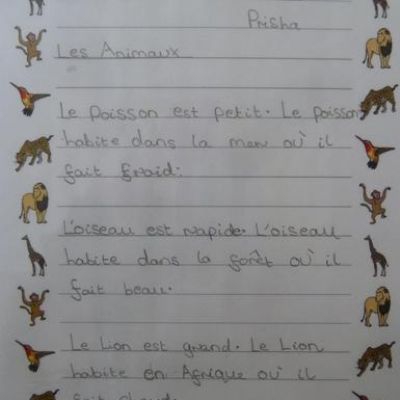 Prisha
Les Animaux
Le poisson est petit. Le poisson
habite dans la mer où il
fait froid.
L'oiseau est rapide. L'oiseau
habite dans la forêt où il
fait beau.
Le Lion est grand. Le Lion
habite en Afrique où il
fait chaud.